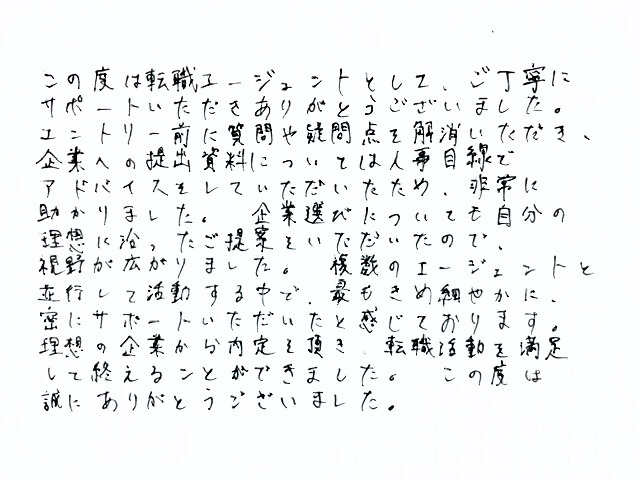 この度は転職エージェントとして、ご丁寧に
サポートいただきありがとうございました。
エントリー前に質問や疑問点を解消いただき、
企業への提出資料については人事目線で
アドバイスをしていただいたため、非常に
助かりました。 企業選びについても自分の
理想に沿ったご提案をいただいたので、
視野が広がりました。 複数のエージェントと
並行して活動する中で、最もきめ細やかに、
密にサポートいただいたと感じております。
理想の企業から内定を頂き、転職活動を満足
して終えることができました。 この度は
誠にありがとうございました。